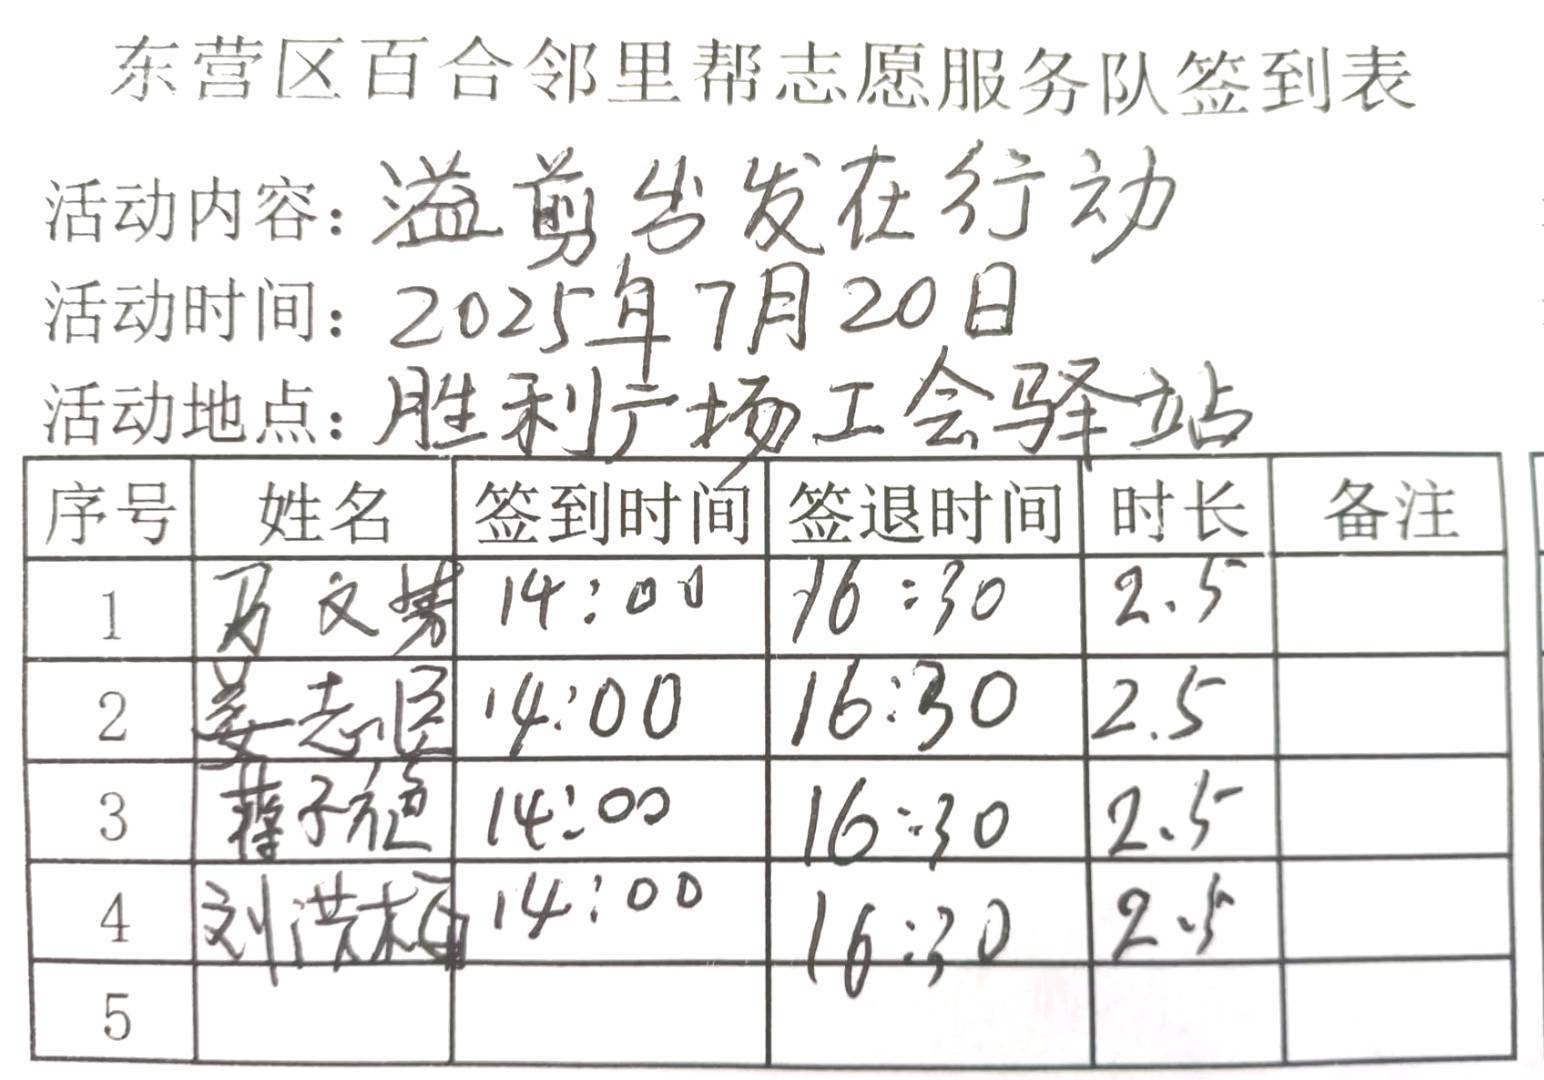 东营区百合邻里帮志愿服务队签到表
活动内容：溢剪出发在行动
活动时间：2025年7月20日
活动地点：胜利广场工会驿站
序号 姓名 签到时间 签退时间 时长 备注
1 文 14:00 16:30 2.5
2 姜志臣 14:00 16:30 2.5
3 蒋子 14:00 16:30 2.5
4 刘洪梅 14:00 16:30 2.5
5